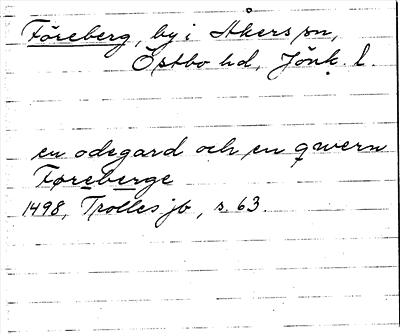 Föreberg, by i Åkers sn,
Östbo hd, Jönk. l.
en ødegard och en qwern
Føreberge
1498, Trolles jb, s. 63.